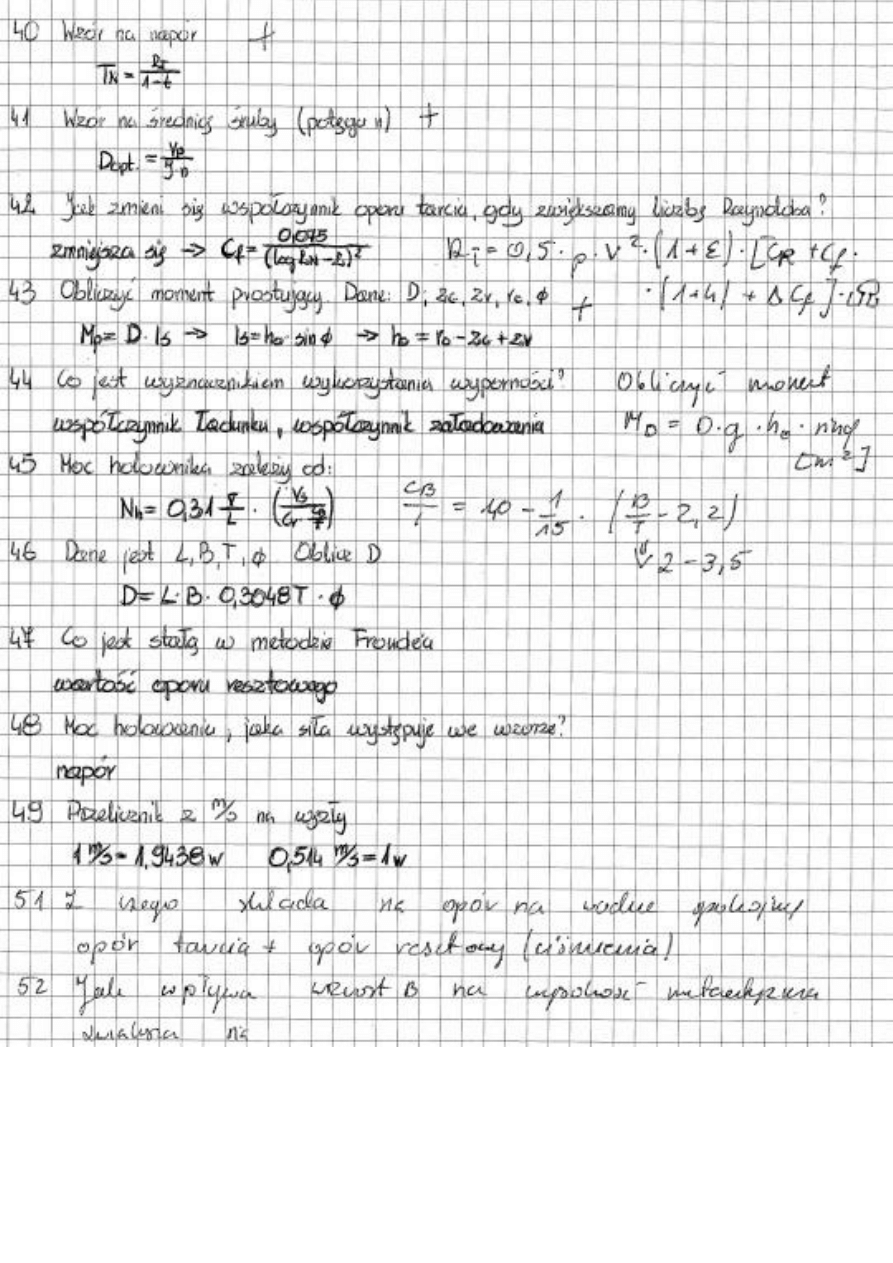 40 Wzór na napór +
TN = RT / 1-t
41 Wzór na średnicę śruby (potęga n) +
Dopt. = Vp / J·n
42 Jak zmieni się współczynnik oporu tarcia, gdy zwiększamy liczbę Raynoldsa?
zmniejsza się → Cf = 0,075 / (log RN - 2)² RT = 0,5 · ρ · V² · (1+ε) · [CR + Cf ·
43 Obliczyć moment prostujący. Dane: D, zc, zv, rc, ϕ + · (1+k) + Δ Cf]
Mp = D · ls → ls = ho · sinϕ → ho = ro - zc + zv
44 Co jest wyznacznikiem wykorzystania wyporności? Obliczyć moment
współczynnik ładunku, współczynnik załadowania MD = D·g·ho·
45 Moc holownika zależy od:
Nh = 0,31 ∇/L · = 10 - 1/15 · (B/T - 2,2)
46 Dane jest L, B, T, ϕ Oblicz D 2 - 3,5
D = L · B · 0,3048T · ϕ
47 Co jest stałą w metodzie Froude'a
wartość oporu resztowego
48 Moc holowania, jaka siła występuje we wzorze?
napór
49 Przelicznik z m/s na węzły
1 m/s = 1,9438 w 0,514 m/s = 1w
51 Z czego składa na opór na wodzie spokojnej
opór tarcia + opór resztowy (ciśnienia)
52 Jak wpływa wzrost B na wysokość metacentryczna